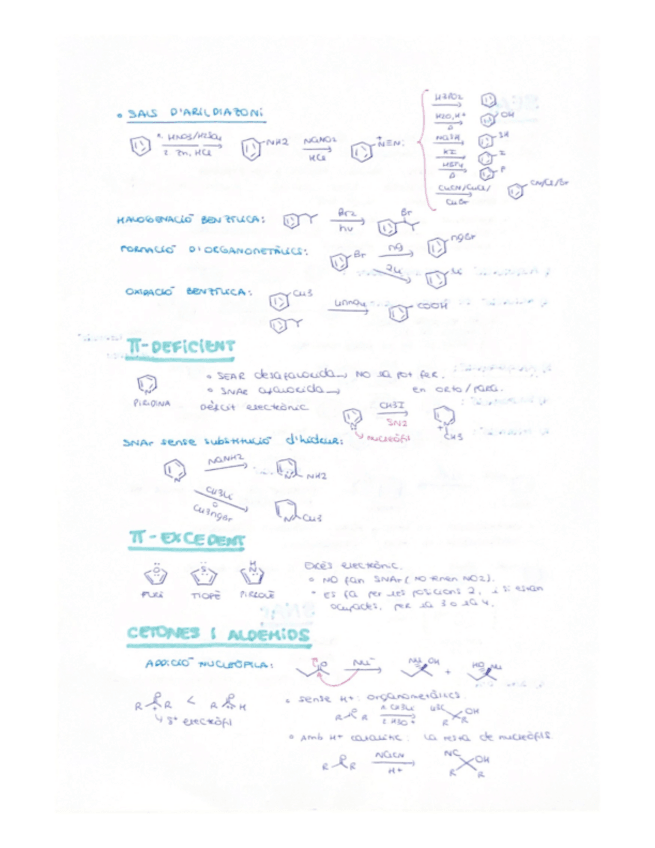 • SALS D'ARILDIAZONI
1. HNO3/H2SO4
2. Zn, HCl
NH2
NaNO2
HCl
N≡N:
H3PO2
H2O, H+
Δ
OH
NaSH
SH
KI
I
HBF4
Δ
F
CuCN/CuCl/
CuBr
CN/Cl/Br
HALOGENACIÓ BENZÍLICA:
Br2
hν
Br
FORMACIÓ D'ORGANOMETÀL·LICS:
Br
Mg
MgBr
2Li
Li
OXIDACIÓ BENZÍLICA:
CH3
KMnO4
COOH
π-DEFICIENT
PIRIDINA
• SEAR desafavorida → NO sa pot fer.
• SNAr afavorida → en orto/para.
Dèficit electrònic
CH3I
SN2
nucleòfil
CH3
SNAr sense substitució d'hidrur:
NaNH2
NH2
CH3Li
o
CH3MgBr
CH3
π-EXCEDENT
FURÀ
TIOFÈ
PIRROLE
Excés electrònic.
• NO fan SNAr (NO tenen NO2).
• Es fa per les posicions 2, i si estan
ocupades, per la 3 o la 4.
CETONES I ALDEHIDS
ADDICIÓ NUCLEÒFILA:
Nu⁻
Nu OH
+
HO Nu
R R < R H
δ+ electròfil
• sense H+: organometàl·lics
R R
1. CH3Li
2. H3O+
H3C OH
R R
• Amb H+ catalític: la resta de nucleòfils
R R
NaCN
H+
NC OH
R R